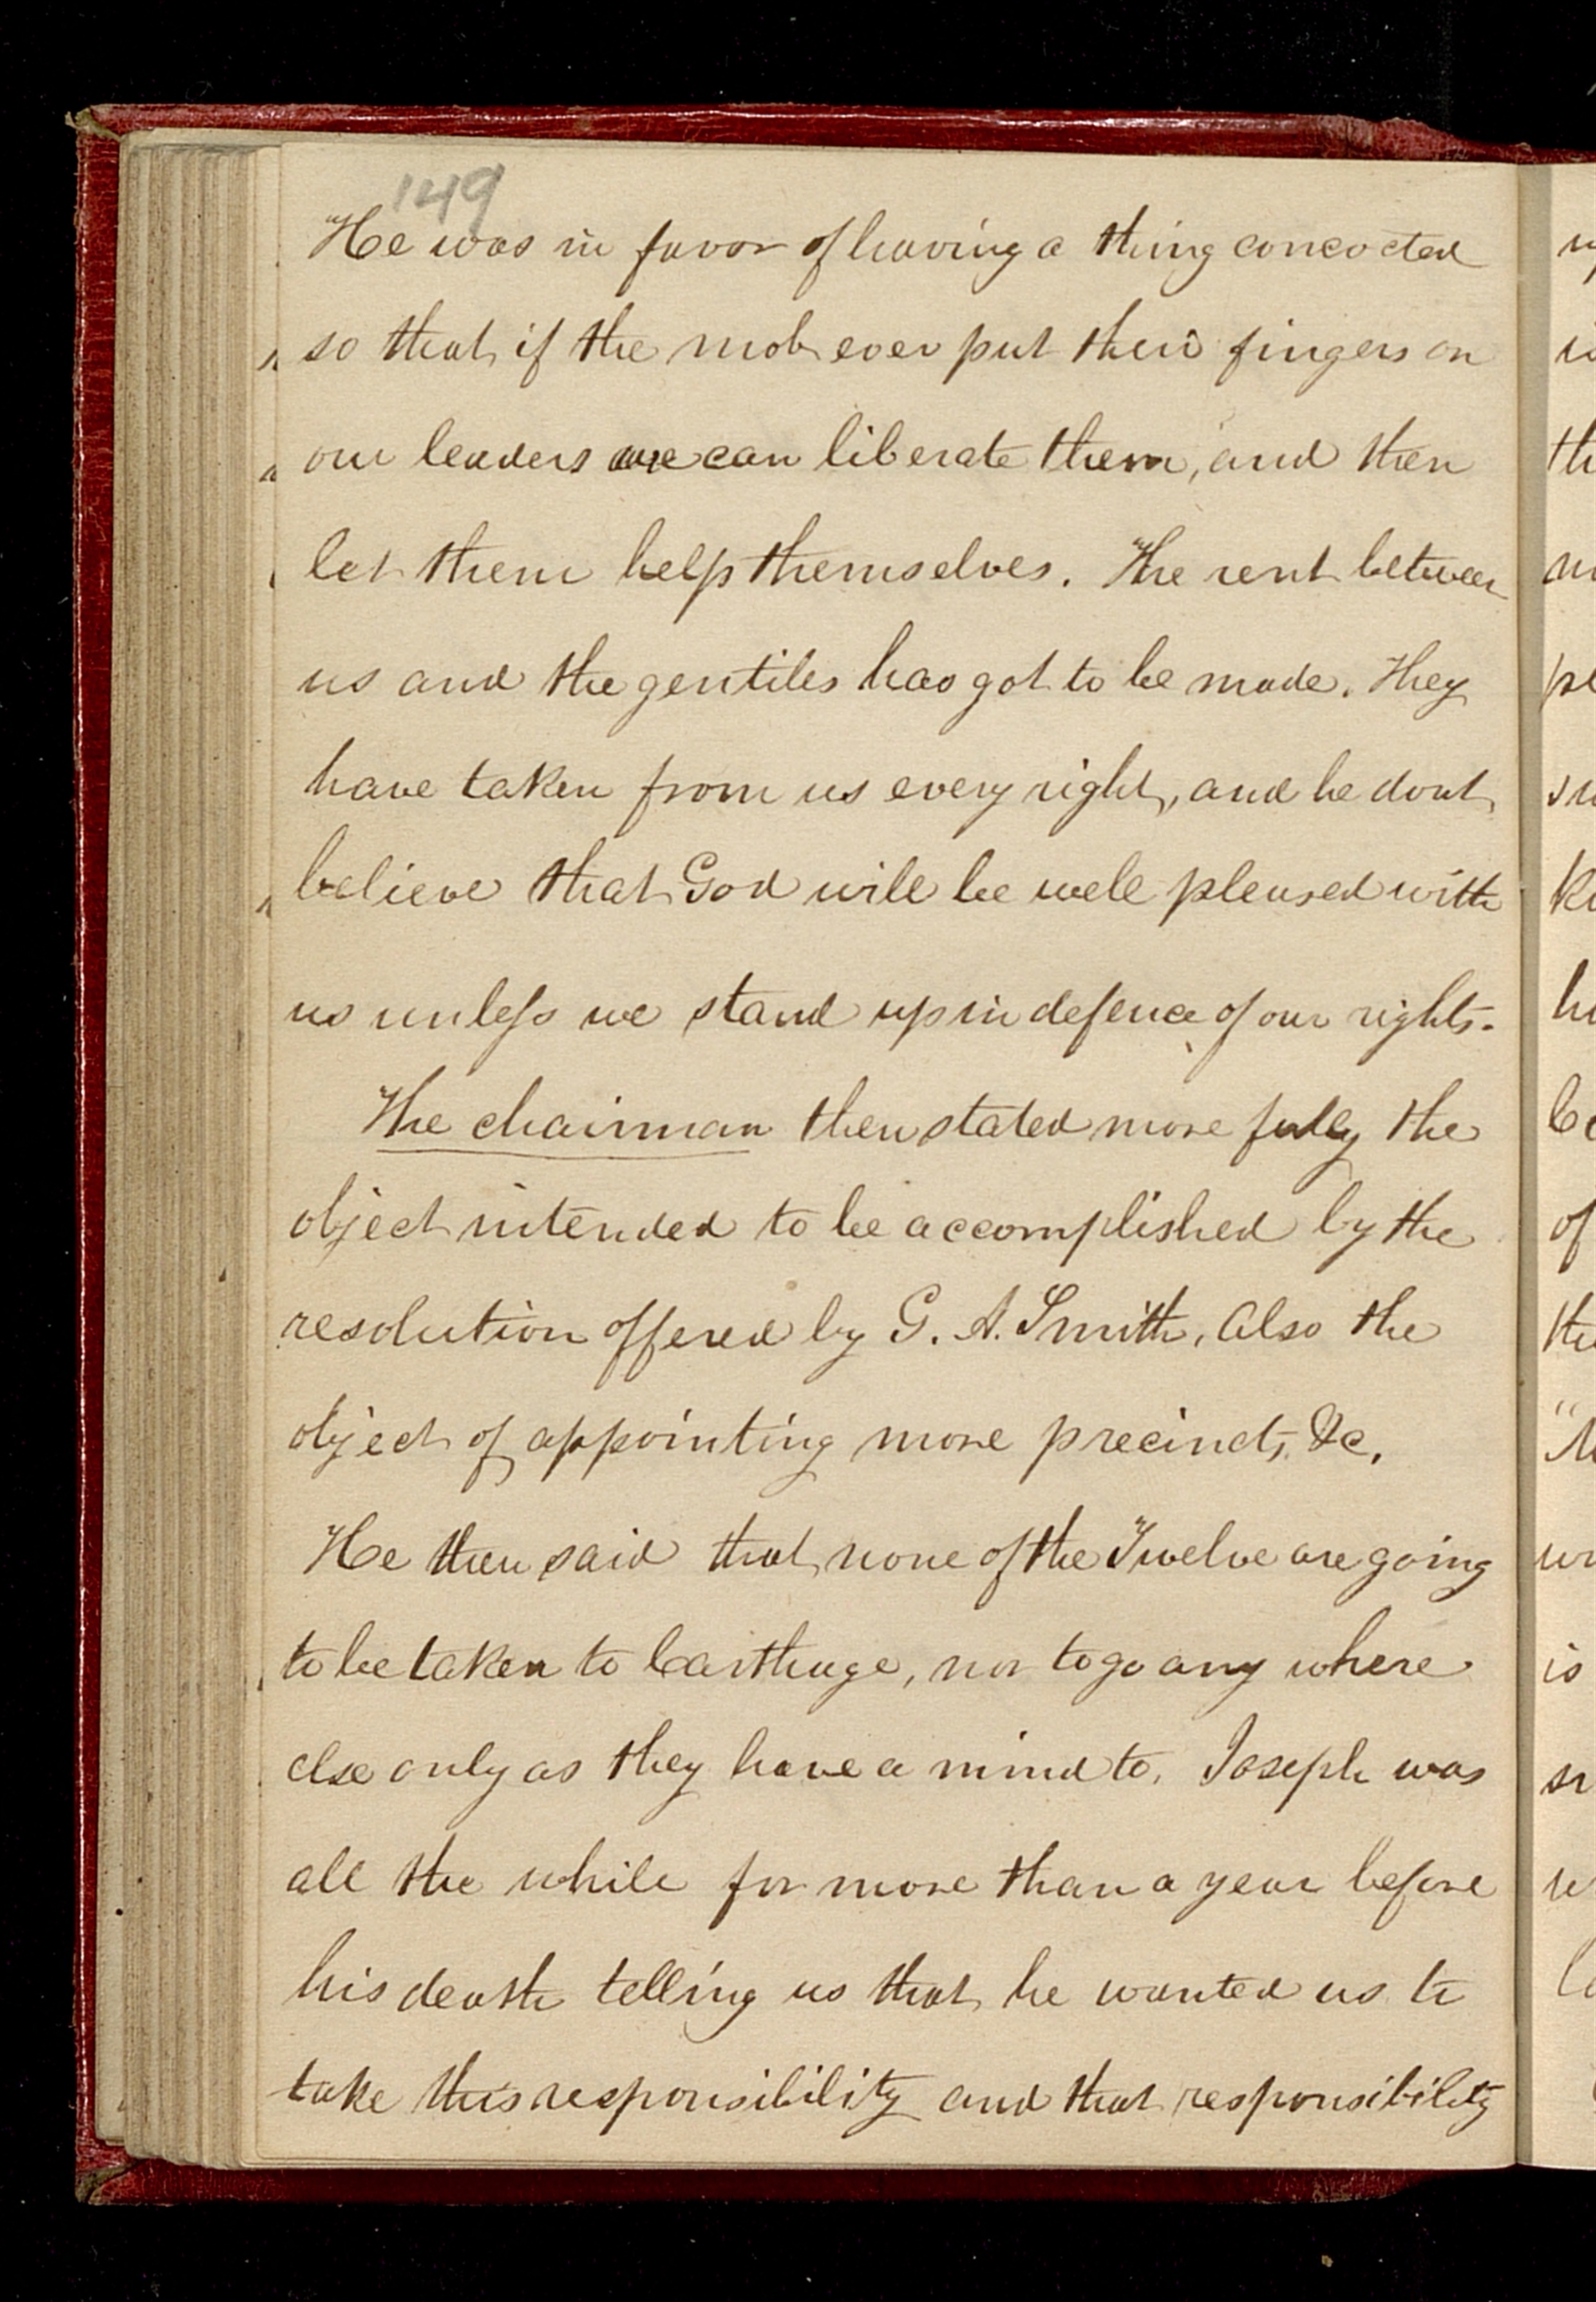 149
He was in favor of having a thing concocted
so that if the mob ever put their fingers on
our leaders we can liberate them, and then
let them help themselves. The rent between
us and the gentiles has got to be made. They
have taken from us every right, and he dont
believe that God will be well pleased with
us unless we stand up in defence of our rights.
The chairman then stated more fully the
object intended to be accomplished by the
resolution offered by G. A. Smith, Also the
object of appointing more precincts, &c.
He then said that none of the Twelve are going
to be taken to Carthage, nor to go any where
else only as they have a mind to. Joseph was
all the while for more than a year before
his death telling us that he wanted us to
take this responsibility and that responsibility